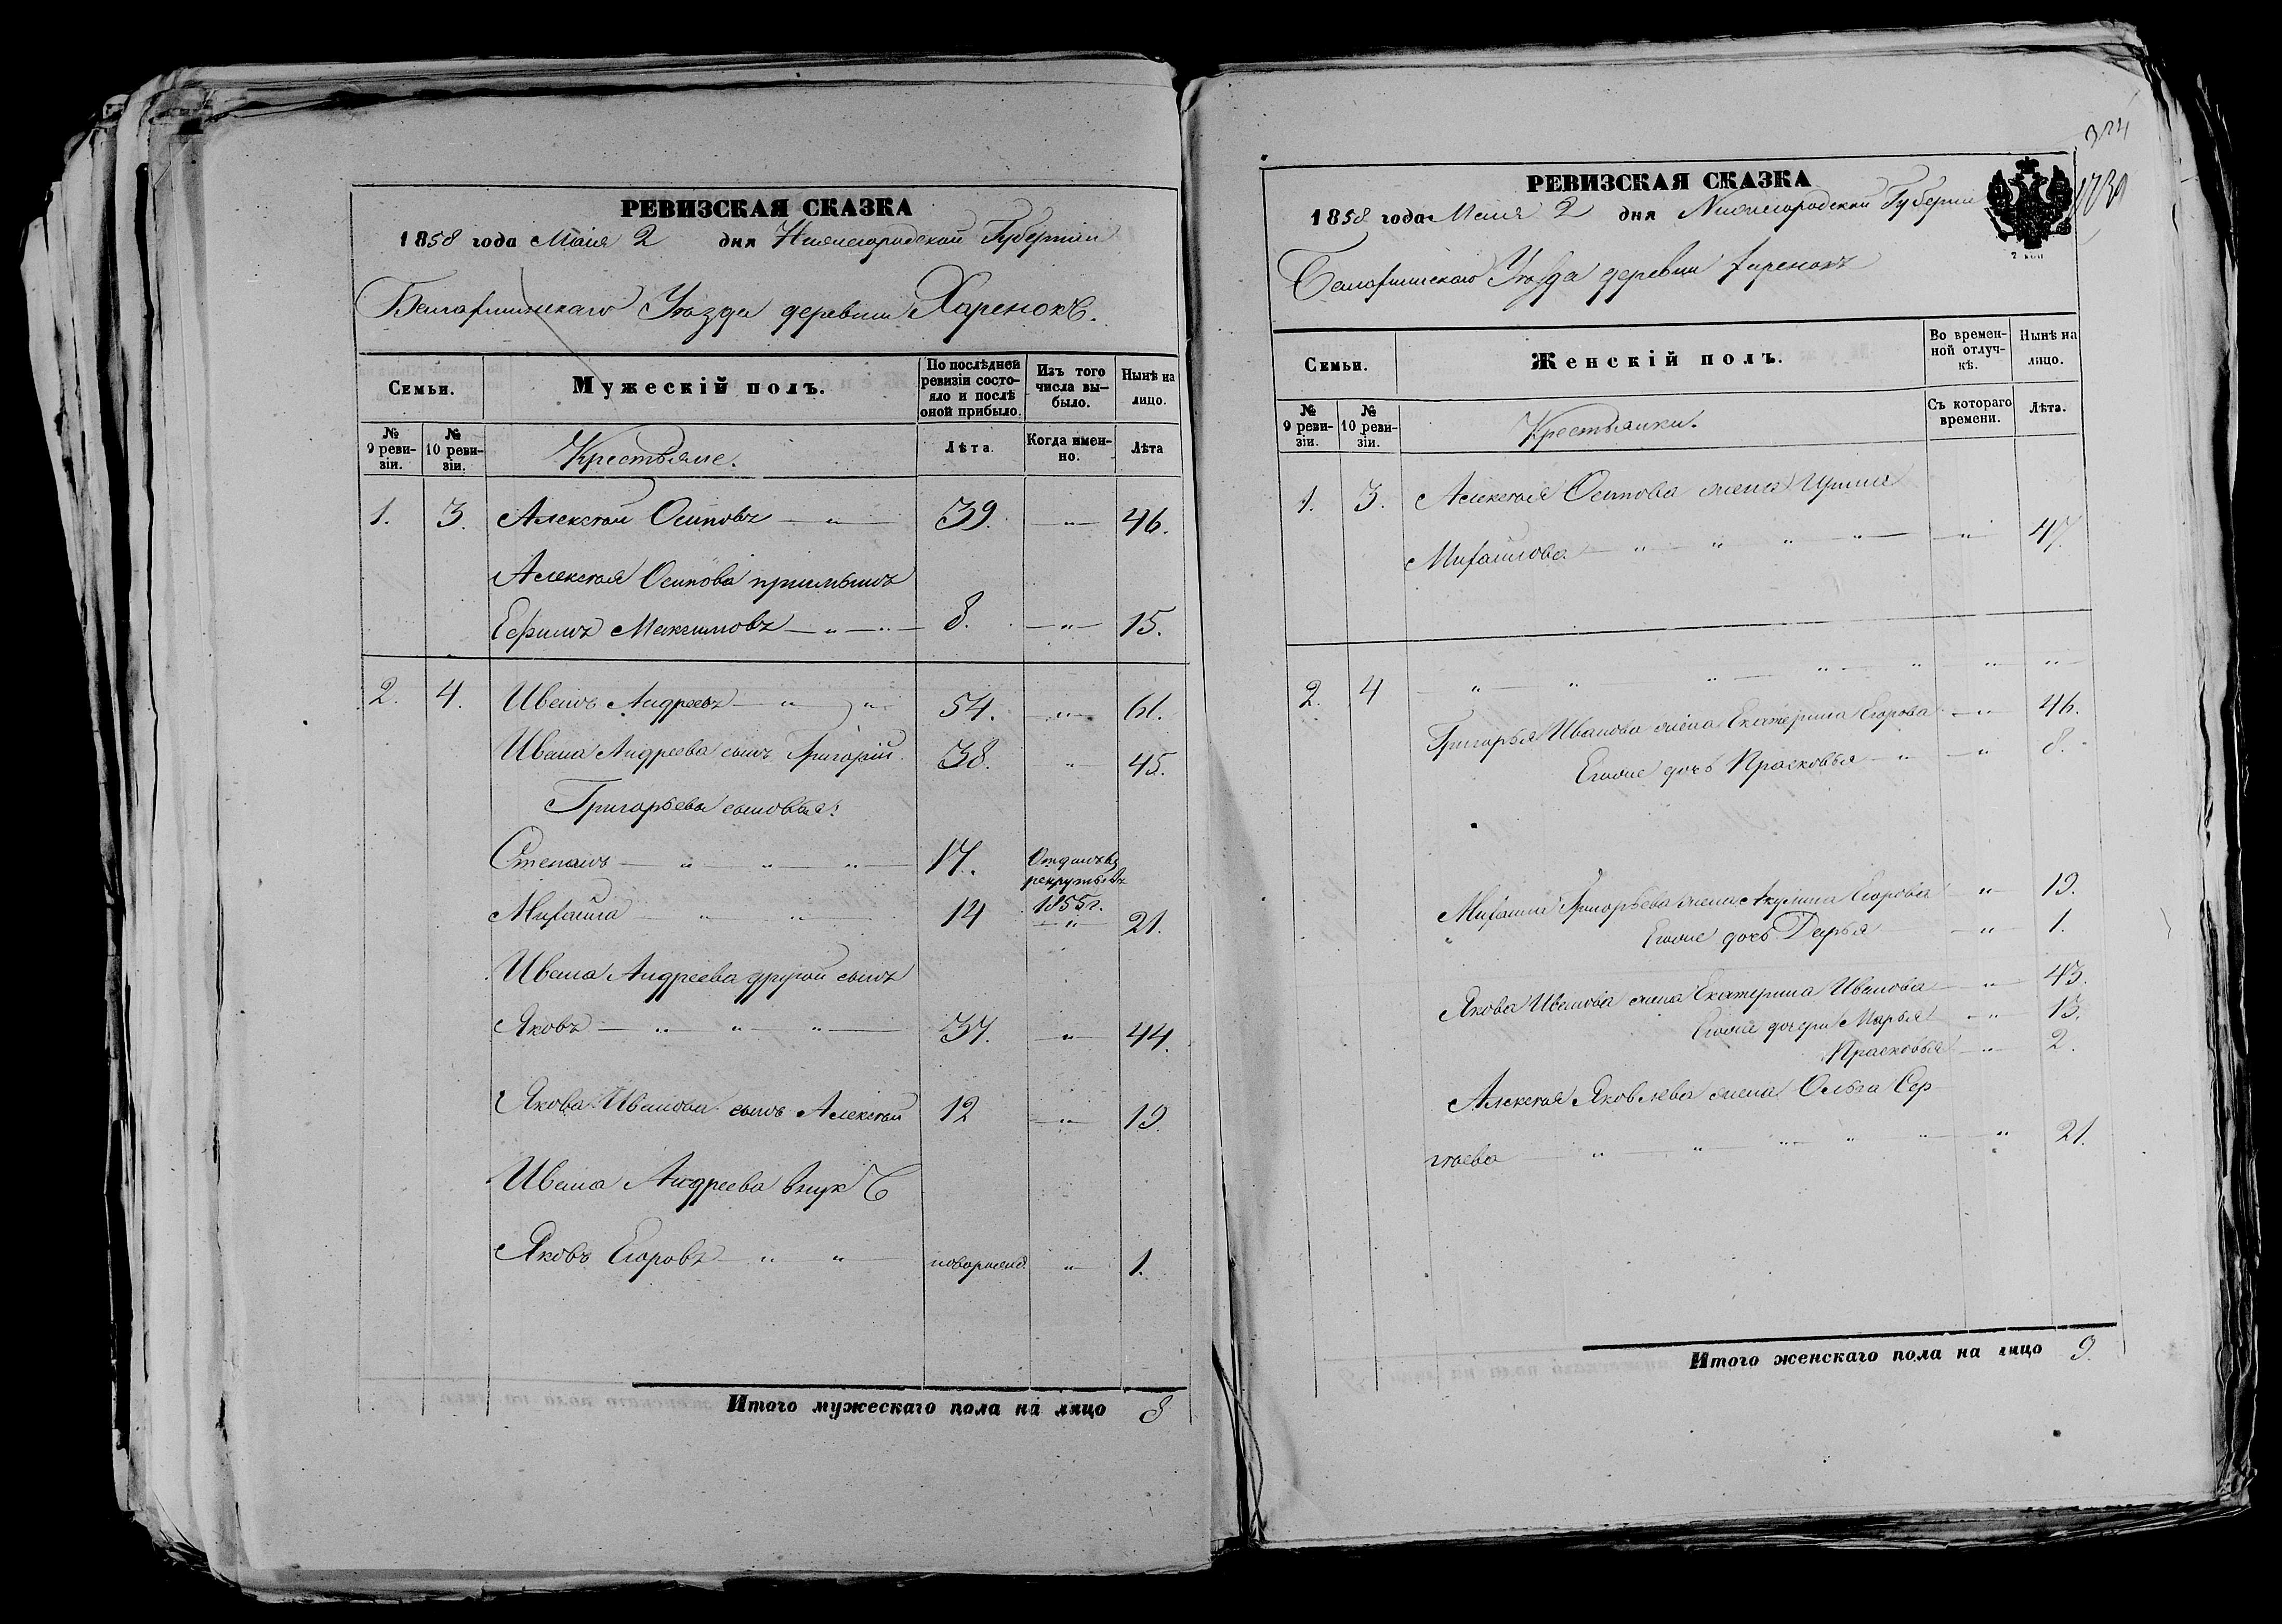 РЕВИЗСКАЯ СКАЗКА
1858 года Маія 2 дня Нижегородской Губерніи
Балахнинскаго Уѣзда деревни Харенокъ.
Семьи.
Мужескій полъ.
По послѣдней ревизіи состояло и послѣ оной прибыло.
Изъ того числа выбыло.
Нынѣ на лицо.
№ 9 ревизіи.
№ 10 ревизіи.
Крестьяне.
Лѣта.
Когда именно.
Лѣта
1. 3. Алексѣй Осиповъ — „ — 39. — „ — 46.
Алексѣя Осипова приемышъ
Ефимъ Максимовъ — „ — „ — 8. — „ — 15.
2. 4. Иванъ Андреевъ — „ — „ 54. — „ — 61.
Ивана Андреева сынъ Григорій. 38. „ 45.
Григорьева сыновья:
Степанъ — „ — „ — „ — 17. Отданъ въ
рекруты въ
1855 г.
Михайла — „ — „ — 14 — „ — 21.
Ивана Андреева другой сынъ
Яковъ — „ — „ — „ — 37. — „ — 44.
Якова Иванова сынъ Алексѣй 12 — „ — 19.
Ивана Андреева внукъ
Яковъ Егоровъ — „ — „ — новорожд. „ 1.
Итого мужескаго пола на лицо 8
324
РЕВИЗСКАЯ СКАЗКА
1858 года Маія 2 дня Нижегородской Губерніи
Балахнинскаго Уѣзда деревни Харенокъ
Семьи.
Женскій полъ.
Во временной отлучкѣ.
Нынѣ на лицо.
№ 9 ревизіи.
№ 10 ревизіи.
Крестьянки.
Съ котораго времени.
Лѣта.
1. 3. Алексѣя Осипова жена Ирина
Михайлова — „ — „ — „ — „ — „ — 47.
2. 4 — „ — „ — „ — „ — „ — „ — „
Григорья Иванова жена Екатерина Егорова — „ 46.
Егоже дочь Прасковья — „ — „ 8.
Михайла Григорьева жена Акулина Егорова „ 19.
Егоже дочь Дарья — „ — 1.
Якова Иванова жена Екатерина Иванова — „ — 43.
Егоже дочери Марья — „ — 13.
Прасковья — „ — 2.
Алексѣя Яковлева жена Ольга Сер-
гѣева — „ — „ — „ — „ — „ — „ 21.
Итого женскаго пола на лицо 9.